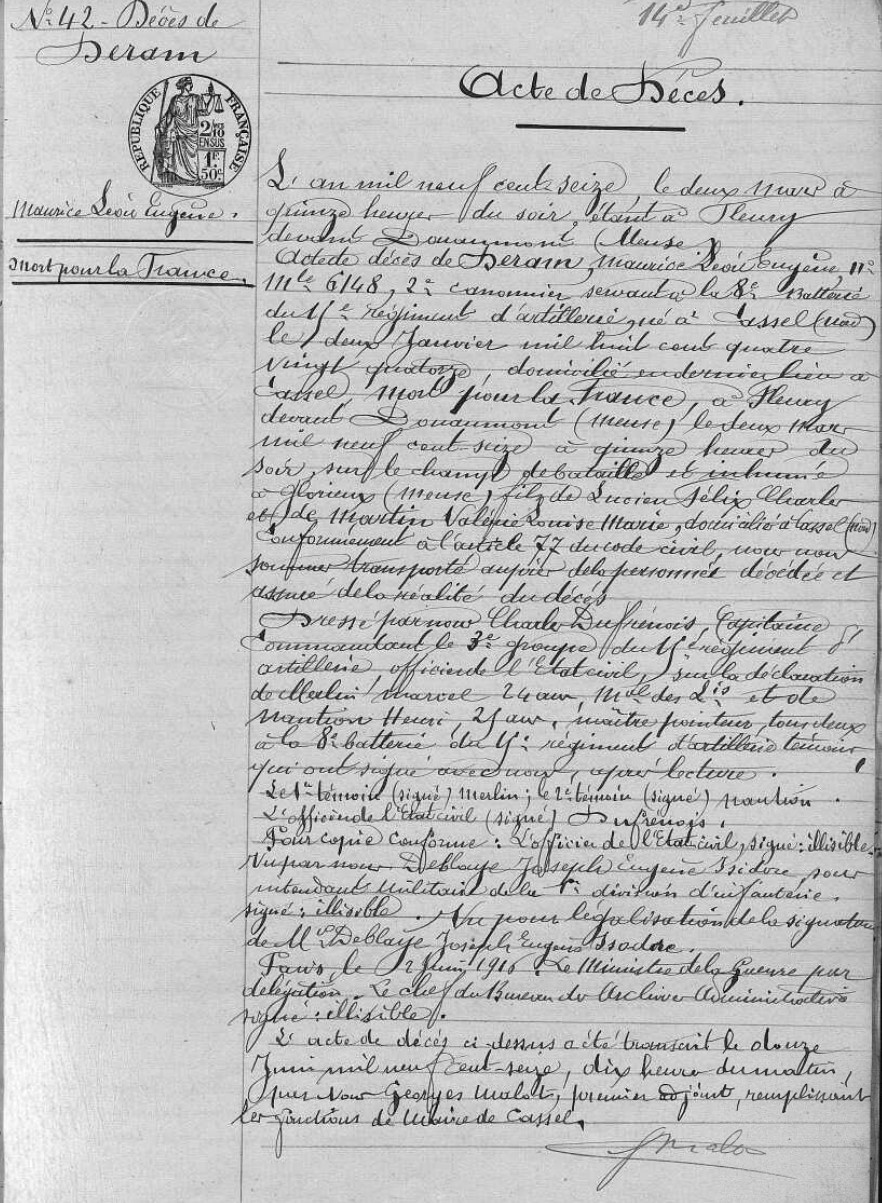 N° 42 - Décès de
Deram
14e feuillet
Acte de Décès.
RÉPUBLIQUE FRANÇAISE
2/10
EN SUS
1F.
50c
Maurice Léon Eugène.
Mort pour la France.
L'an mil neuf cent seize, le deux mars à
quinze heures du soir, étant à Fleury
devant Douaumont (Meuse)
Acte de décès de Deram, Maurice Léon Eugène, n°
Mle 6148, 2e canonnier servant à la 8e Batterie
du 15e régiment d'artillerie, né à Cassel (Nord)
le deux Janvier mil huit cent quatre
vingt quatorze, domicilié en dernier lieu à
Cassel, Mort pour la France, à Fleury
devant Douaumont (Meuse) le deux mars
mil neuf cent seize à quinze heures du
soir, sur le champ de bataille et inhumé
à Glorieux (Meuse) fils de Lucien Félix Charles
et de Martin Valérie Louise Marie, domicilié à Cassel (Nord)
Conformément à l'article 77 du code civil, nous nous
sommes transporté auprès de la personne décédée et
assuré de la réalité du décès
Dressé par nous Charles Dufrénois, Capitaine
Commandant le 3e groupe du 15e régiment d'
artillerie, officier de l'Etat civil, sur la déclaration
de Merlin Marcel 24 ans, Mal des Lis et de
Nantion Henri, 25 ans, maître pointeur, tous deux
à la 8e batterie du 15e régiment d'artillerie témoins
qui ont signé avec nous, après lecture.
Le 1er témoin (signé) Merlin; le 2e témoin (signé) Nantion.
L'officier de l'Etat civil (signé) Dufrénois.
Pour copie conforme: L'officier de l'Etat civil, signé: illisible.
Vu par nous Deblaye Joseph Eugène Isidore, sous
intendant militaire de la 1re division d'infanterie.
signé: illisible. Vu pour légalisation de la signature
de Mr Deblaye Joseph Eugène Isidore.
Paris, le 2 Juin 1916. Le Ministre de la Guerre par
délégation. Le chef du Bureau des Archives Administratives
signé: illisible.
L'acte de décès ci-dessus a été transcrit le douze
Juin mil neuf cent-seize, dix heures du matin,
par Nous Georges Malot, premier adjoint, remplissant
les fonctions de Maire de Cassel.